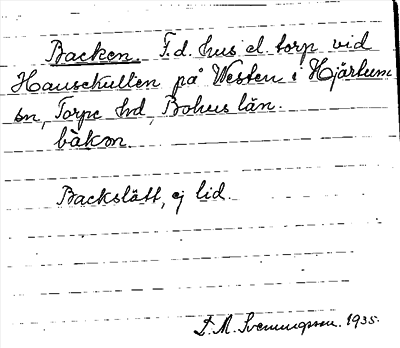 Backen. F.d. hus el. torp vid
Hansekullen på Westen i Hjärtum
sn, Torpe hd, Bohus län.
bàkən.
Backslätt, ej lid.
D. M. Svenungsson. 1935.